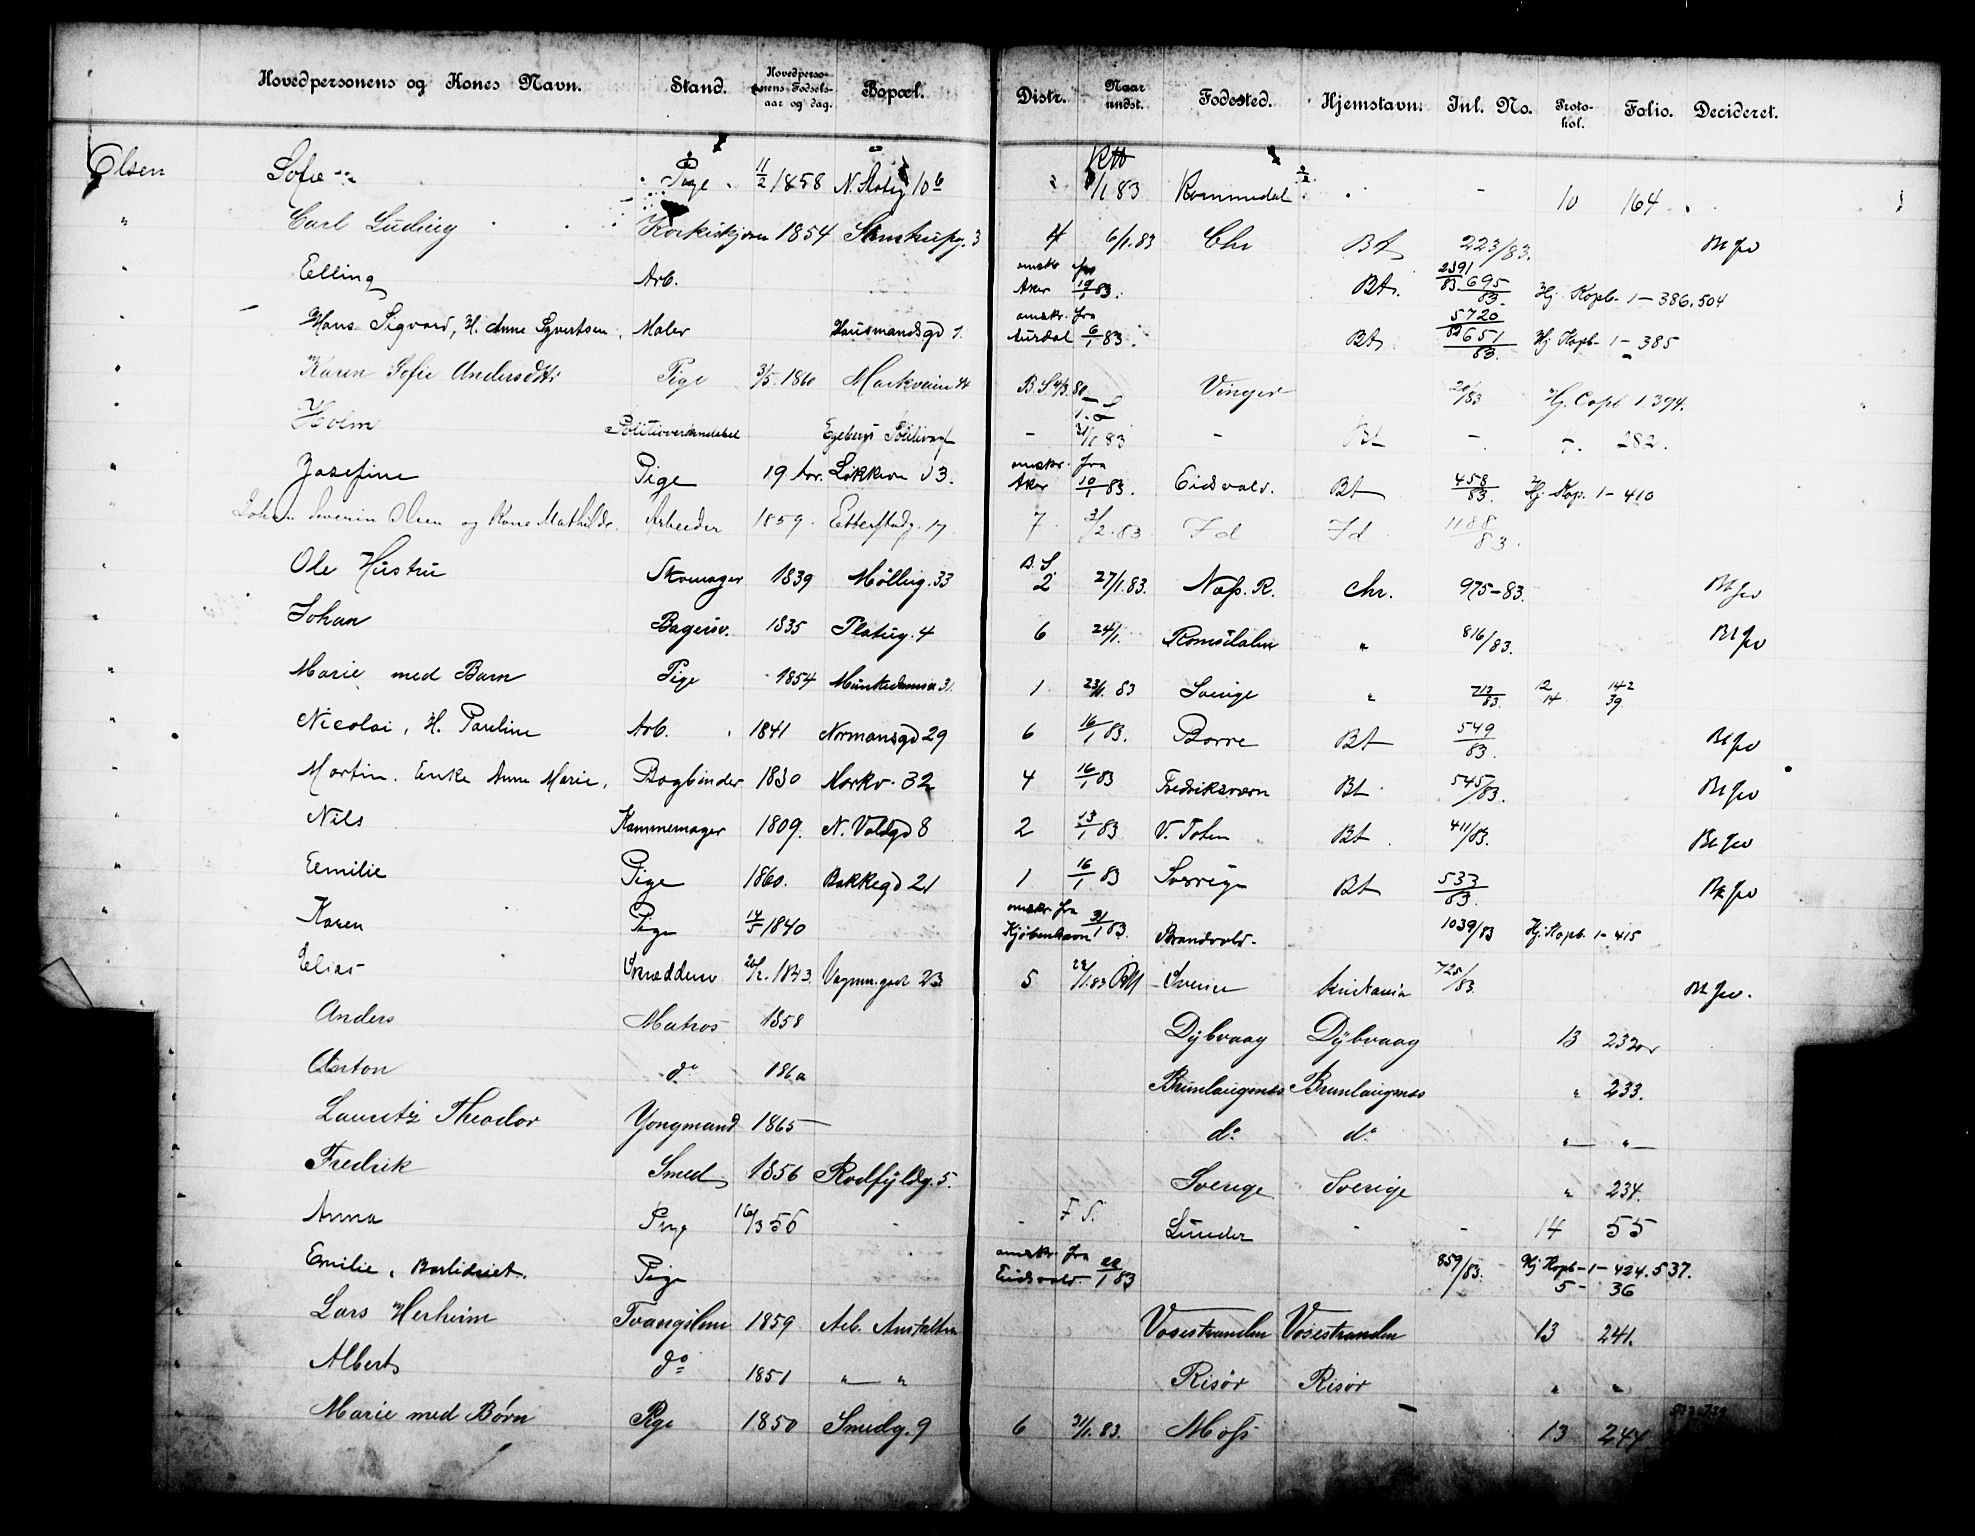 Hovedpersonens og Kones Navn. Stand. Hovedpersonens Fødselsaar og dag. Bopæl. Distr. Naar undst. Fødested. Hjemstavn. Inl. No. Protokol. Folio. Decideret.
Olsen Sofie Pige 11/2 1858 N. Slotsg 10 b 1/1 83 Rommedal - 10 164
" Carl Ludvig 1854 3 4 6/1.83 Chr Bt 223/83.
" Elling Arb. omskr fra Aker 19/1 83. Bt. 2391/83. 695/83. Hj. Kopb. 1-386.504
" Hans Sigvard, H. Anne Syvertsen, Maler Hausmandsgd 1. omskr. fra Aurdal 6/1 83. Bt 5720/82 651/83. Hj Kopb. 1-385
" Karen Sofie Andersdttr Pige 3/5. 1860 Markveien 4 Vinger 20/83 Hj. Copb 1.394.
" Holm Politioverkonstabel 31/1 83 - Bt - 282.
" Josefine Pige 19 Aar. Løkkevn 3. omskr. fra Aker 10/1 83. Eidsvold. Bt 458/83. Hj. Kop. 1-410
Johan Severin Olsen og Kone Mathilde. Arbeider 1859. Etterstadg. 17. 7 3/2.83 Id Id 1188/83.
" Ole Hustru Skomager 1839 Møllerg. 33 B. S. 2 27/1.83. Næs. R. Chr. 975-83.
" Johan Bagersv. 1835 Platug. 4 6 24/1. Romsdalen " 816/83.
" Marie med Barn Pige 1854 Munkedamsv 31. 1 23/1. 83 Sverige " 713/83. 12 14 142 39
" Nicolai, H. Pauline Arb. 1841 Normansgd 29 6 16/1 83. Borre Bt 549/83.
" Martin. Enke Anne Marie, Bogbinder 1830 Markv. 32 4 16/1 83 Fredriksværn Bt 545/83.
" Nils Kammemager 1809. N. Voldgd 8 2 13/1 83 V. Toten Bt 411/83.
" Emilie Pige 1860. Bakkegd 21 1 16/1 83 Sverrige Bt 533/83.
" Karen Pige 14/5 1840 omskr. fra Kjøbenhavn 31/1 83. Brandvold. 1039/83 Hj. Kopb. 1-415
Elias Skræddersv 26/2. 1843. Vognm.gade 23 5 22/1.83 Kristania 725/83.
Anders Matros 1858 Dybvaag Dybvaag 13 232
" Anton do 1860 Brunlaugenæs Brunlaugenæs " 233.
" Lauritz Theodor Yongmand 1865 do do " "
" Fredrik Smed 1856 Rodfyldg. 5. Sverige Sverige " 234.
" Anna Pige 16/3 56 - F S. Lunder - - 14 55
" Emilie, Pige omskr. fra Eidsvold. 22/1 83 859/83. Hj Kopb-1-424.537. 5- 36
" Lars Herheim Tvangslem 1859 Arb. Anstalten Vossestranden Vossestranden 13 241.
" Albert do 1851 " " Risør Risør " "
" Marie med Børn Pige 1850 Smedg. 9 6 31/1. 83. Moss 13 244